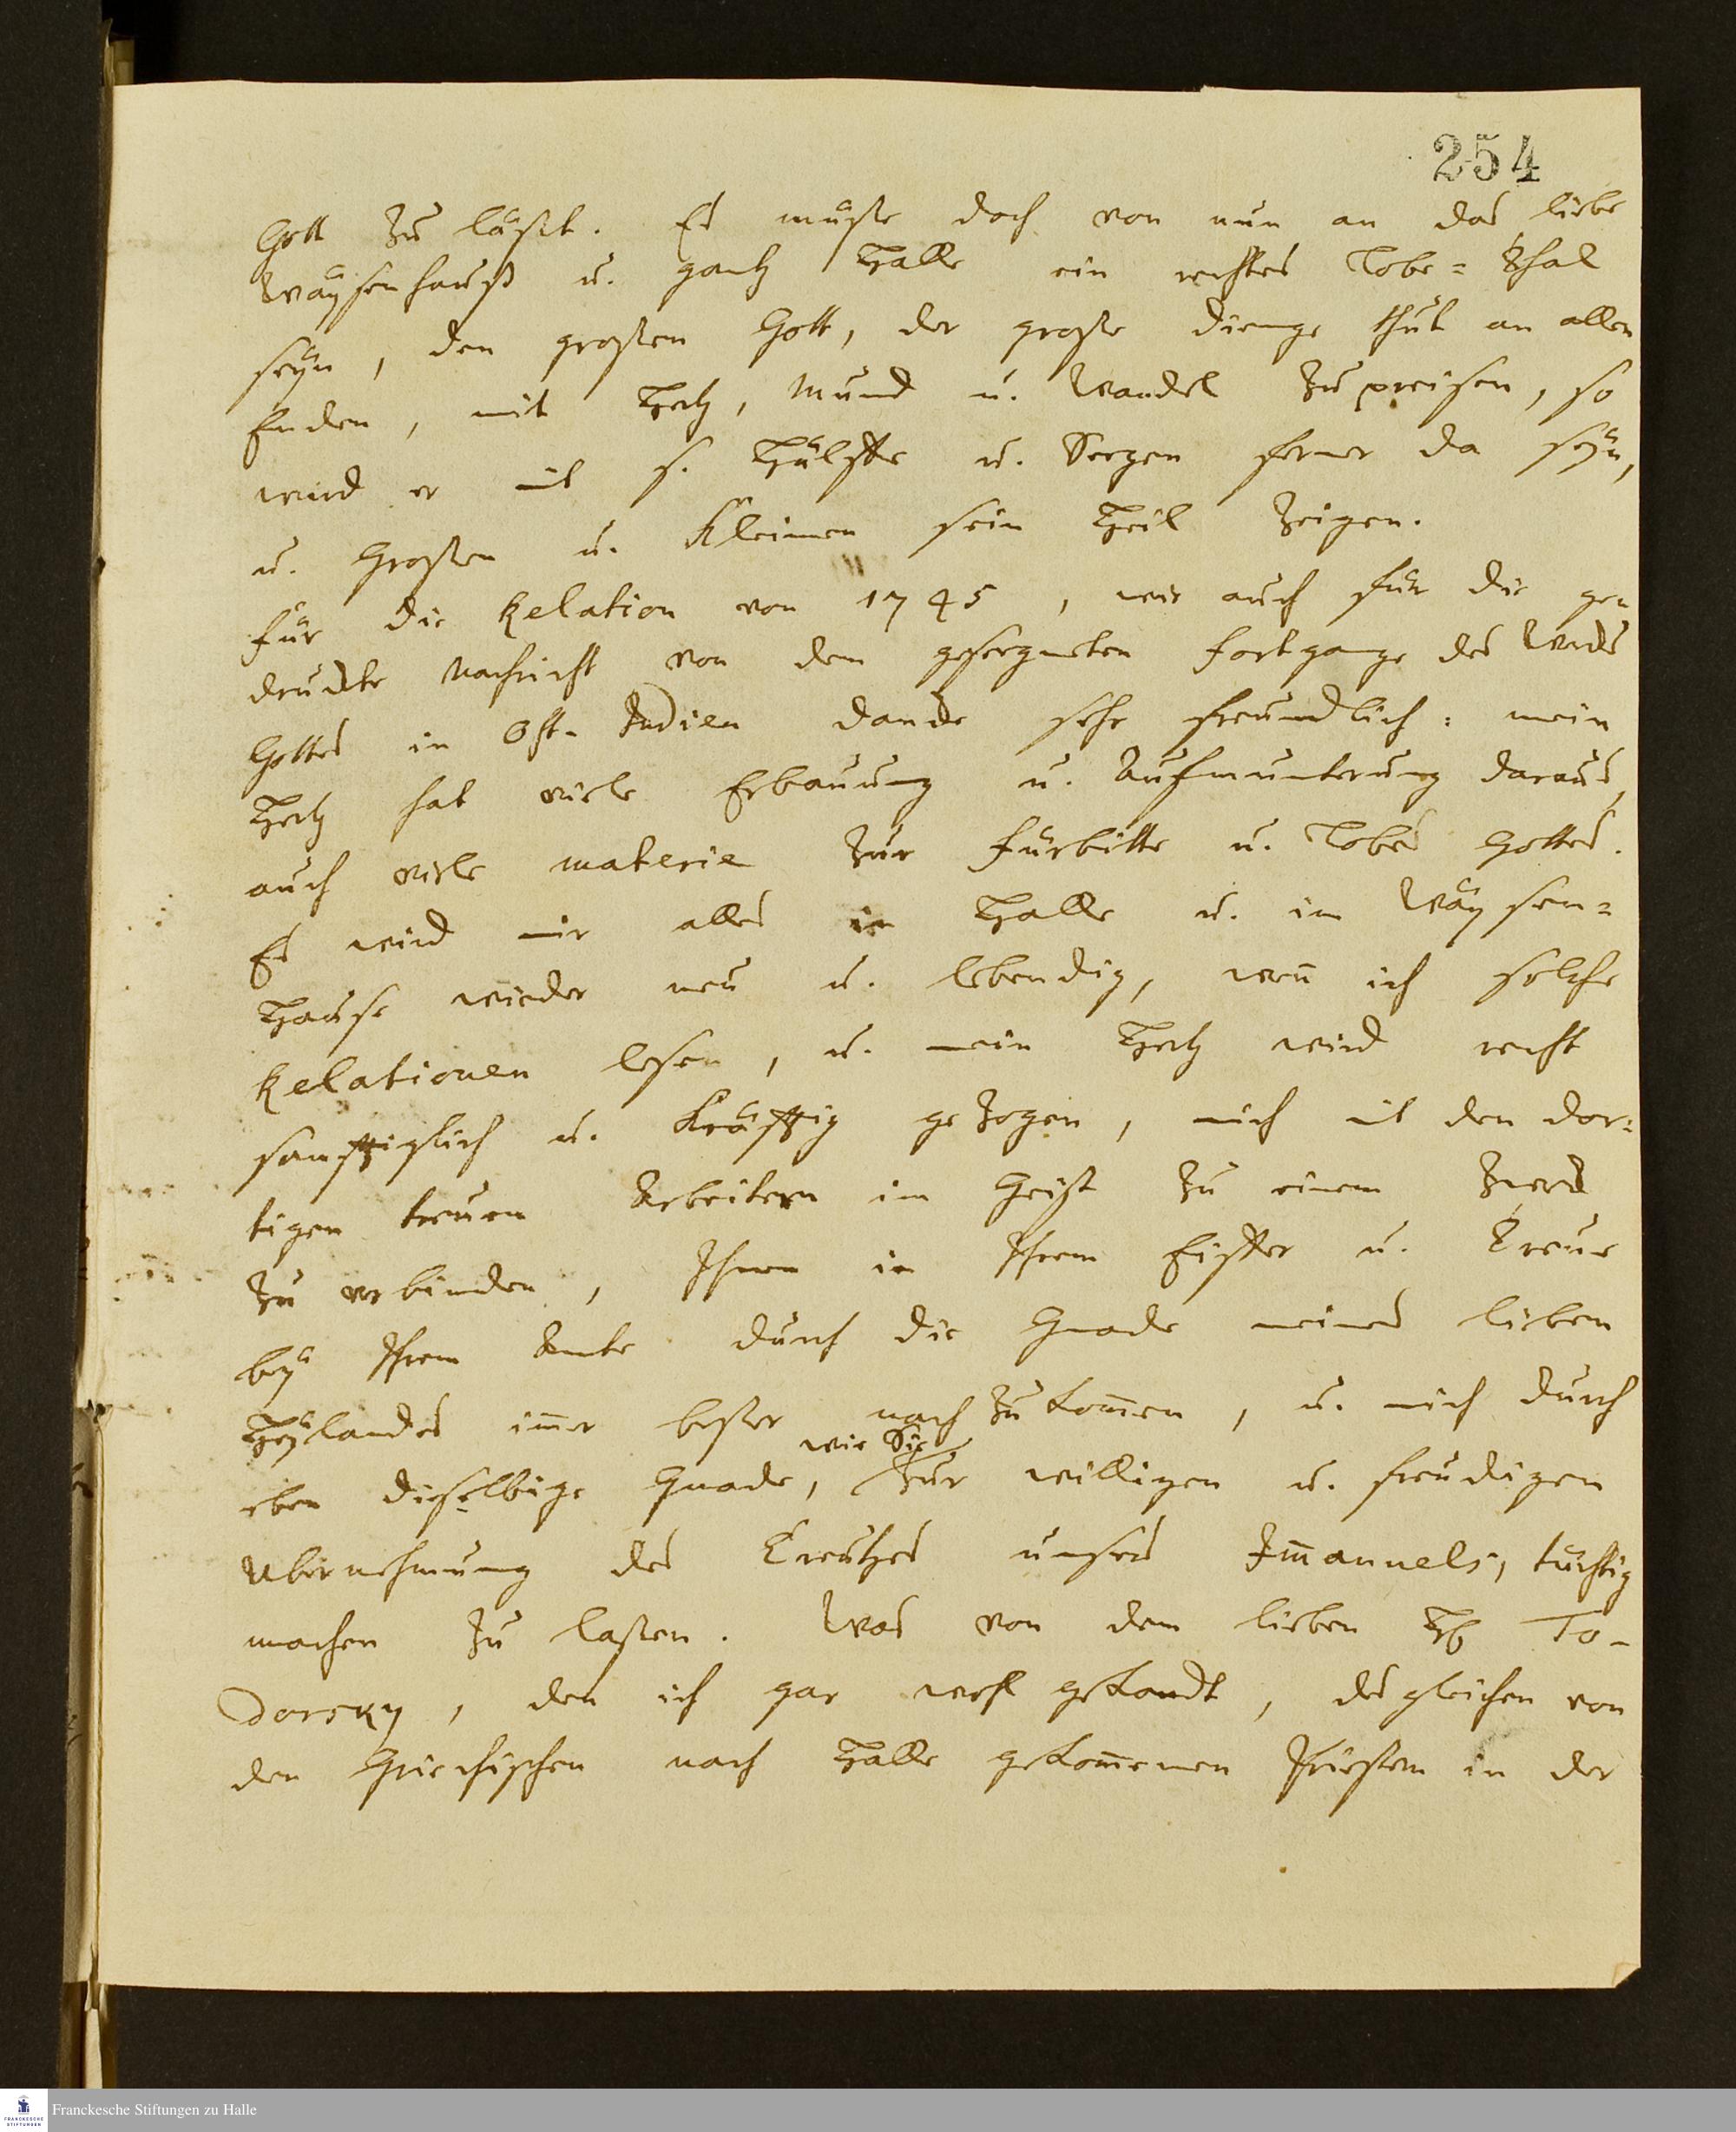 254
Gott zu läßt. Es müße doch von nun an das liebe
Waysenhauß u. gantz Halle ein rechtes Lobe=Thal
seyn, den großen Gott, der große Dienge thut an allen
Enden, mit Hertz, Mund u. Wandel zu preisen, so
wird er mit s. Hülffe u. Seegen ferner da seyn,
u. Großen u. Kleinen sein Heil zeigen.
für die Relation von 1745, wie auch für die ge-
druckte Nachricht von dem geseegneten Fortgange des Wercks
Gottes in Ost-Indien dancke sehr freundlich: mein
Hertz hat viele Erbauung u. Aufmunterung daraus,
auch viele materie zur Fürbitte u. Lobes Gottes.
Es wird mir alles in Halle u. im Waysen=
Hause wieder neu u. lebendig, wen̄ ich solche
Relationen lesen, u. mein Hertz wird recht
sanfftiglich u. kräfftig gezogen, mich mit den dor=
tigen treuen Arbeitern im Geist zu einem Zweck
zu verbinden, Ihnen in Ihrem Eiffer u. Treue
bey Ihrem Amte durch die Gnade meines lieben
Heylandes im̄er beßer nach zu kom̄en, u. mich durch
wie Sie
eben dieselbige Gnade, zur willigen u. freudigen
Ubernehmung des Creutzes unsers Im̄anuels, tüchtig
machen zu laßen. Was von dem lieben H. To-
dorsky, den ich gar wohl gekandt, desgleichen von
den Griechischen nach Halle gekom̄enen Priestern in der
Franckesche Stiftungen zu Halle